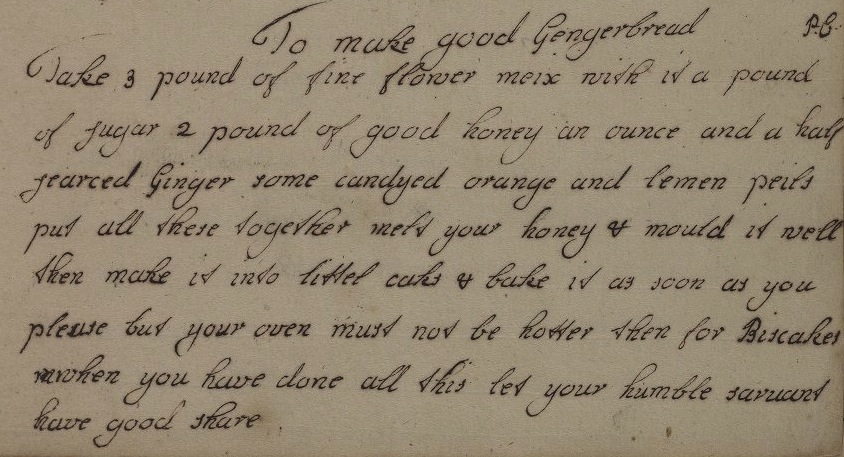 To make good Gengerbread P:C:
Take 3 pound of fine flower meix with it a pound
of sugar 2 pound of good honey an ounce and a half
searced Ginger some candyed orange and lemen peils
put all these together melt your honey & mould it well
then make it into littel caks & bake it as soon as you
please but your oven must not be hotter then for Biscakes
when you have done all this let your humble saruant
have good share